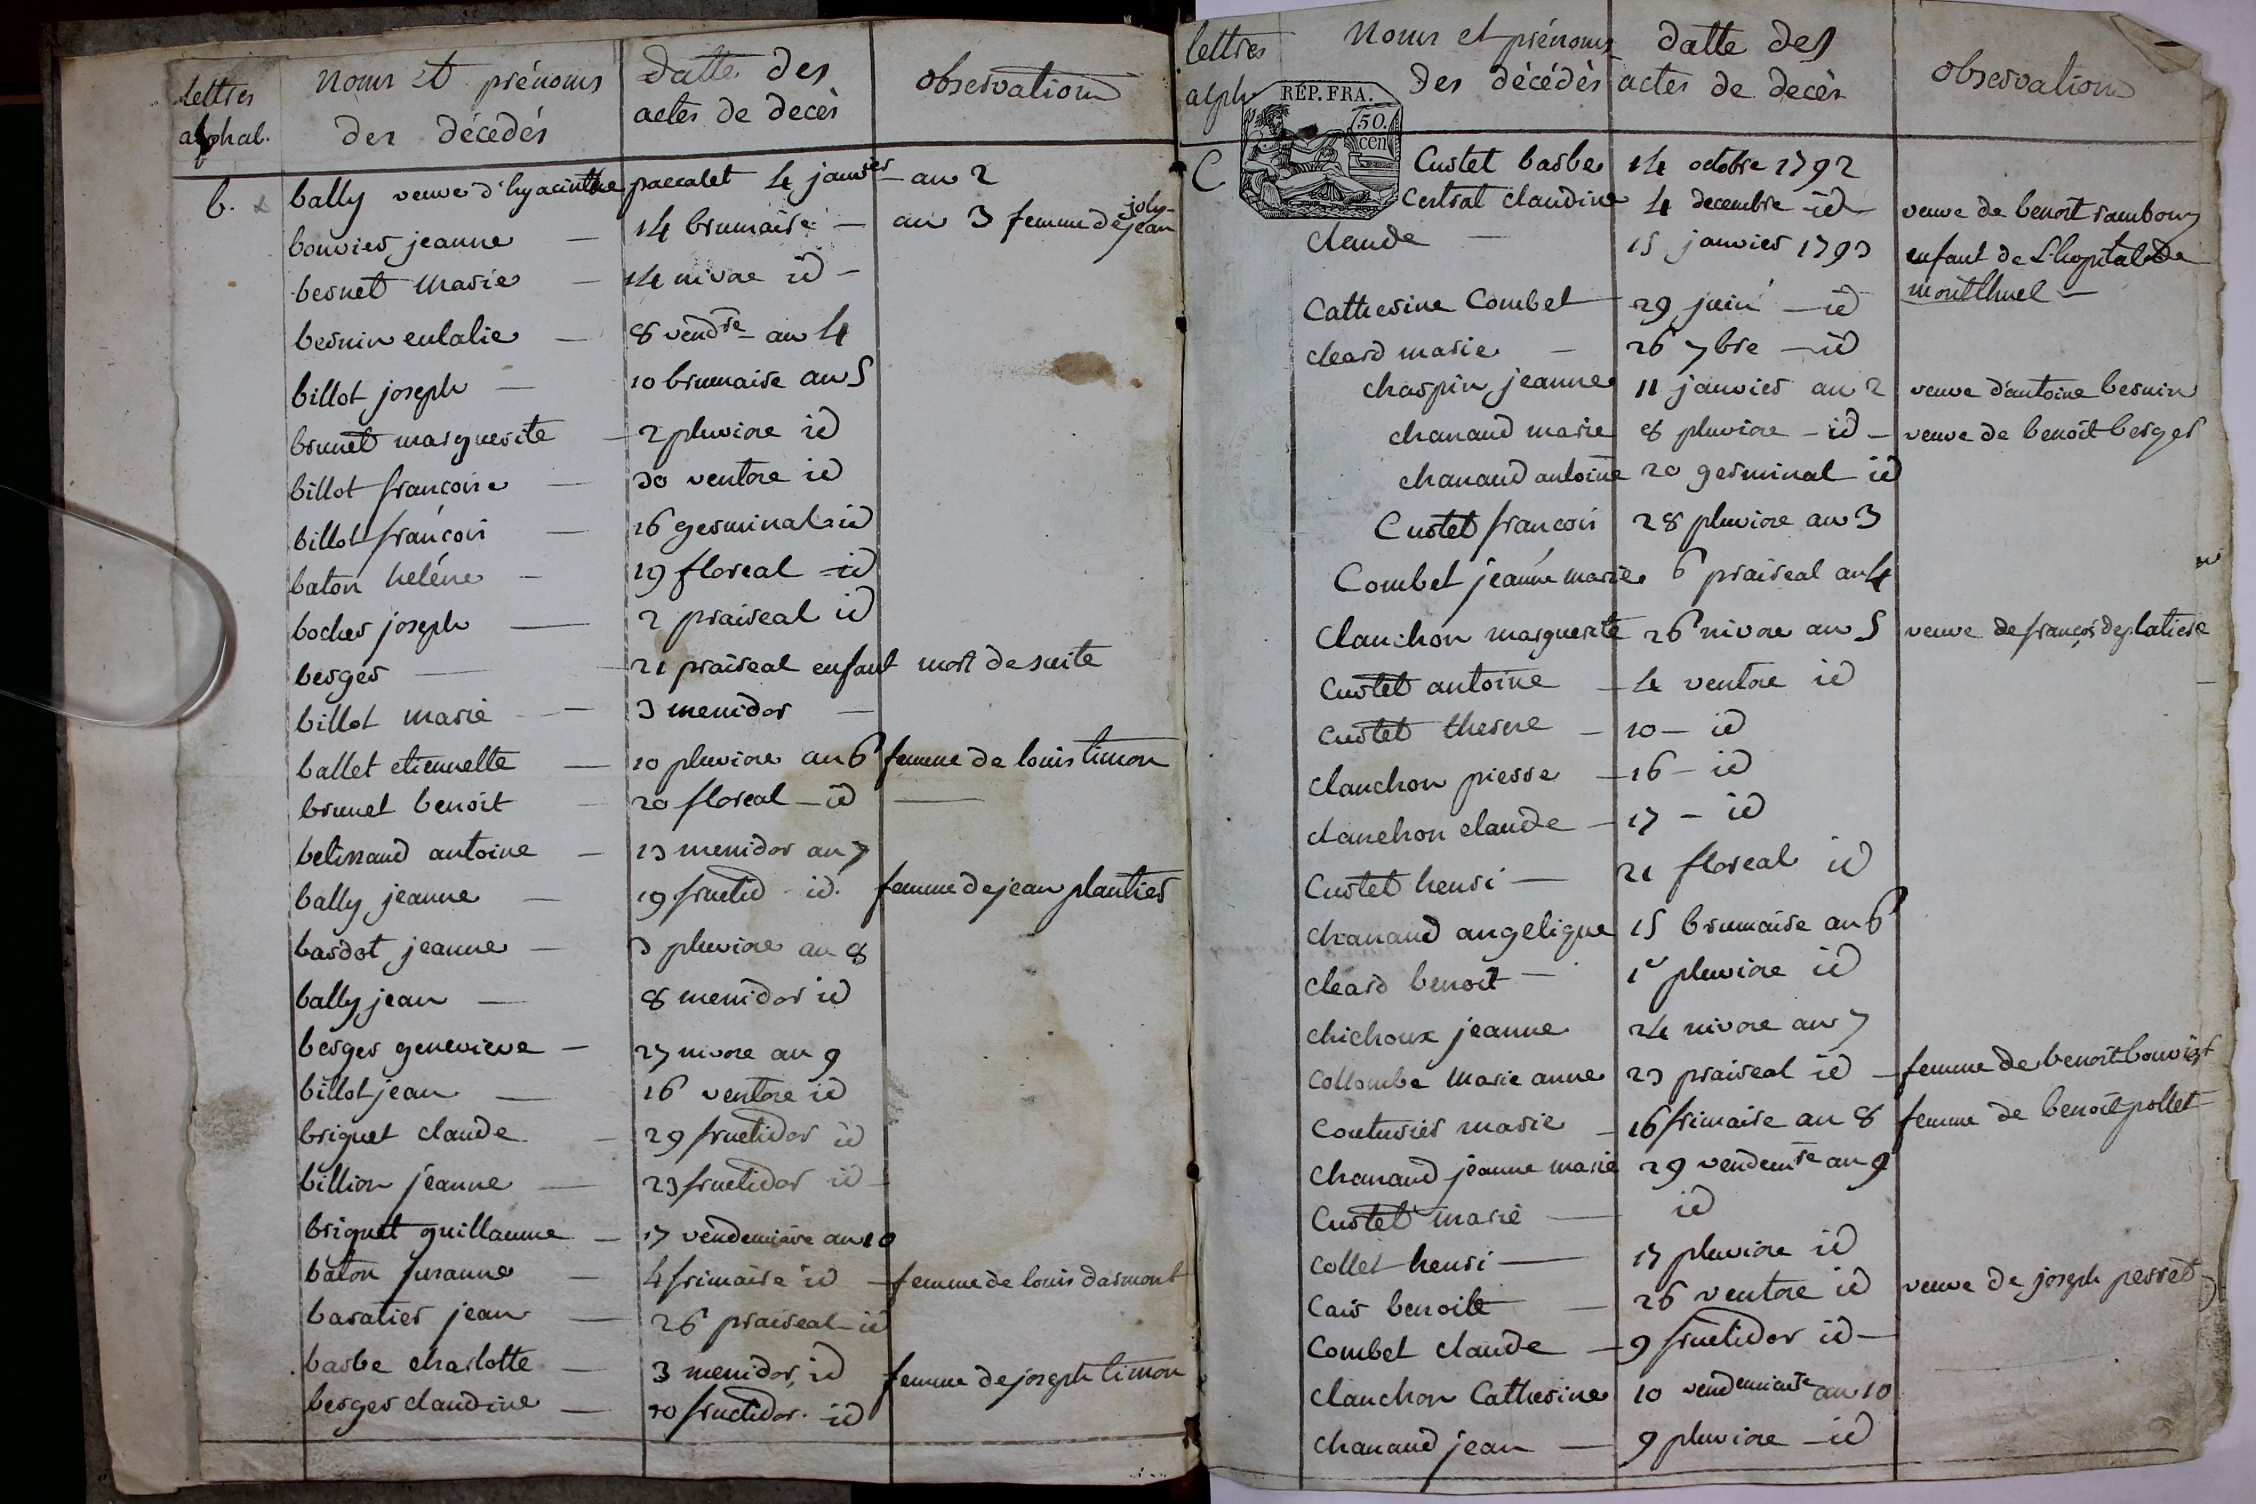 lettres alphab.
noms et prénoms des décédés
datte des actes de decès
observations
b. bally veuve d'hyacinthe paccalet 4 janvier - an 2
bouvier jeanne — 14 brumaire — an 3 femme de jean joly
bernet marie — 14 nivose id —
bernin eulalie — 8 vendre — an 4
billot joseph — 10 brumaire an 5
brunet marguerite — 2 pluviose id
billot francoise — 30 ventose id
billot francois — 26 germinal id
baton heléne — 19 floreal id
bocher joseph — 2 prairial id
berger — 21 praireal enfant mort de suite
billot marie — 3 messidor —
ballet etiennette — 10 pluviose an 6 femme de louis timon
brunet benoit — 20 floreal — id —
belissand antoine — 13 messidor an 7
bally jeanne — 19 fructid id. femme de jean plantier
bardot jeanne — 3 pluviose an 8
bally jean — 8 messidor id
berger genevieve — 27 nivose an 9
billot jean — 16 ventose id
briquet claude — 29 fructidor id
billion jeanne — 23 fructidor id —
briquet guillaume — 17 vendemiaire an 10
baton suranne — 4 frimaire id — femme de louis darmont
baratier jean — 26 praireal id
barbe charlotte — 3 messidor, id femme de joseph timon
berger claudine — 30 fructidor. id
lettres alph
noms et prénoms des décédés
datte des actes de decès
observations
RÉP. FRA.
50. cen
C Curtet barbe 14 octobre 1792
Certrat claudine 4 decembre id veuve de benoit rambouz
claude — 15 janvier 1793 enfant de l'hopital de
montluel —
Catherine Combet 29 juin — id
cleard marie — 26 7bre — id
charpin jeanne 11 janvier an 2 veuve d'antoine bernin
chanaud marie 8 pluviose — id — veuve de benoit berger
chanaud antoine 20 germinal id
Curtet francois 28 pluviose an 3
Combet jeanne marie 6 praireal an 4
Clanchon marguerite 26 nivose an 5 veuve de françois deplatiere
Curtet antoine — 4 ventose id
Curtet therese — 10 — id
clanchon pierre — 16 — id
clanchon claude — 17 — id
Curtet henri — 21 floreal id
chanaud angelique 15 brumaire an 6
cleard benoit — 1er pluviose id
chichoux jeanne 24 nivose an 7
Collombe Marie anne 23 praireal id — femme de benoit bouvier
Couturier marie — 16 frimaire an 8 femme de benoit pollet
Chanaud jeanne marie 29 vendemre an 9
Curtet marie — id
Collet henri — 17 pluviose id
Cair benoite — 26 ventose id veuve de joseph perret
Combet claude — 9 fructidor id —
Clanchon Catherine 10 vendemiaire an 10
Chanaud jean — 9 pluviose — id